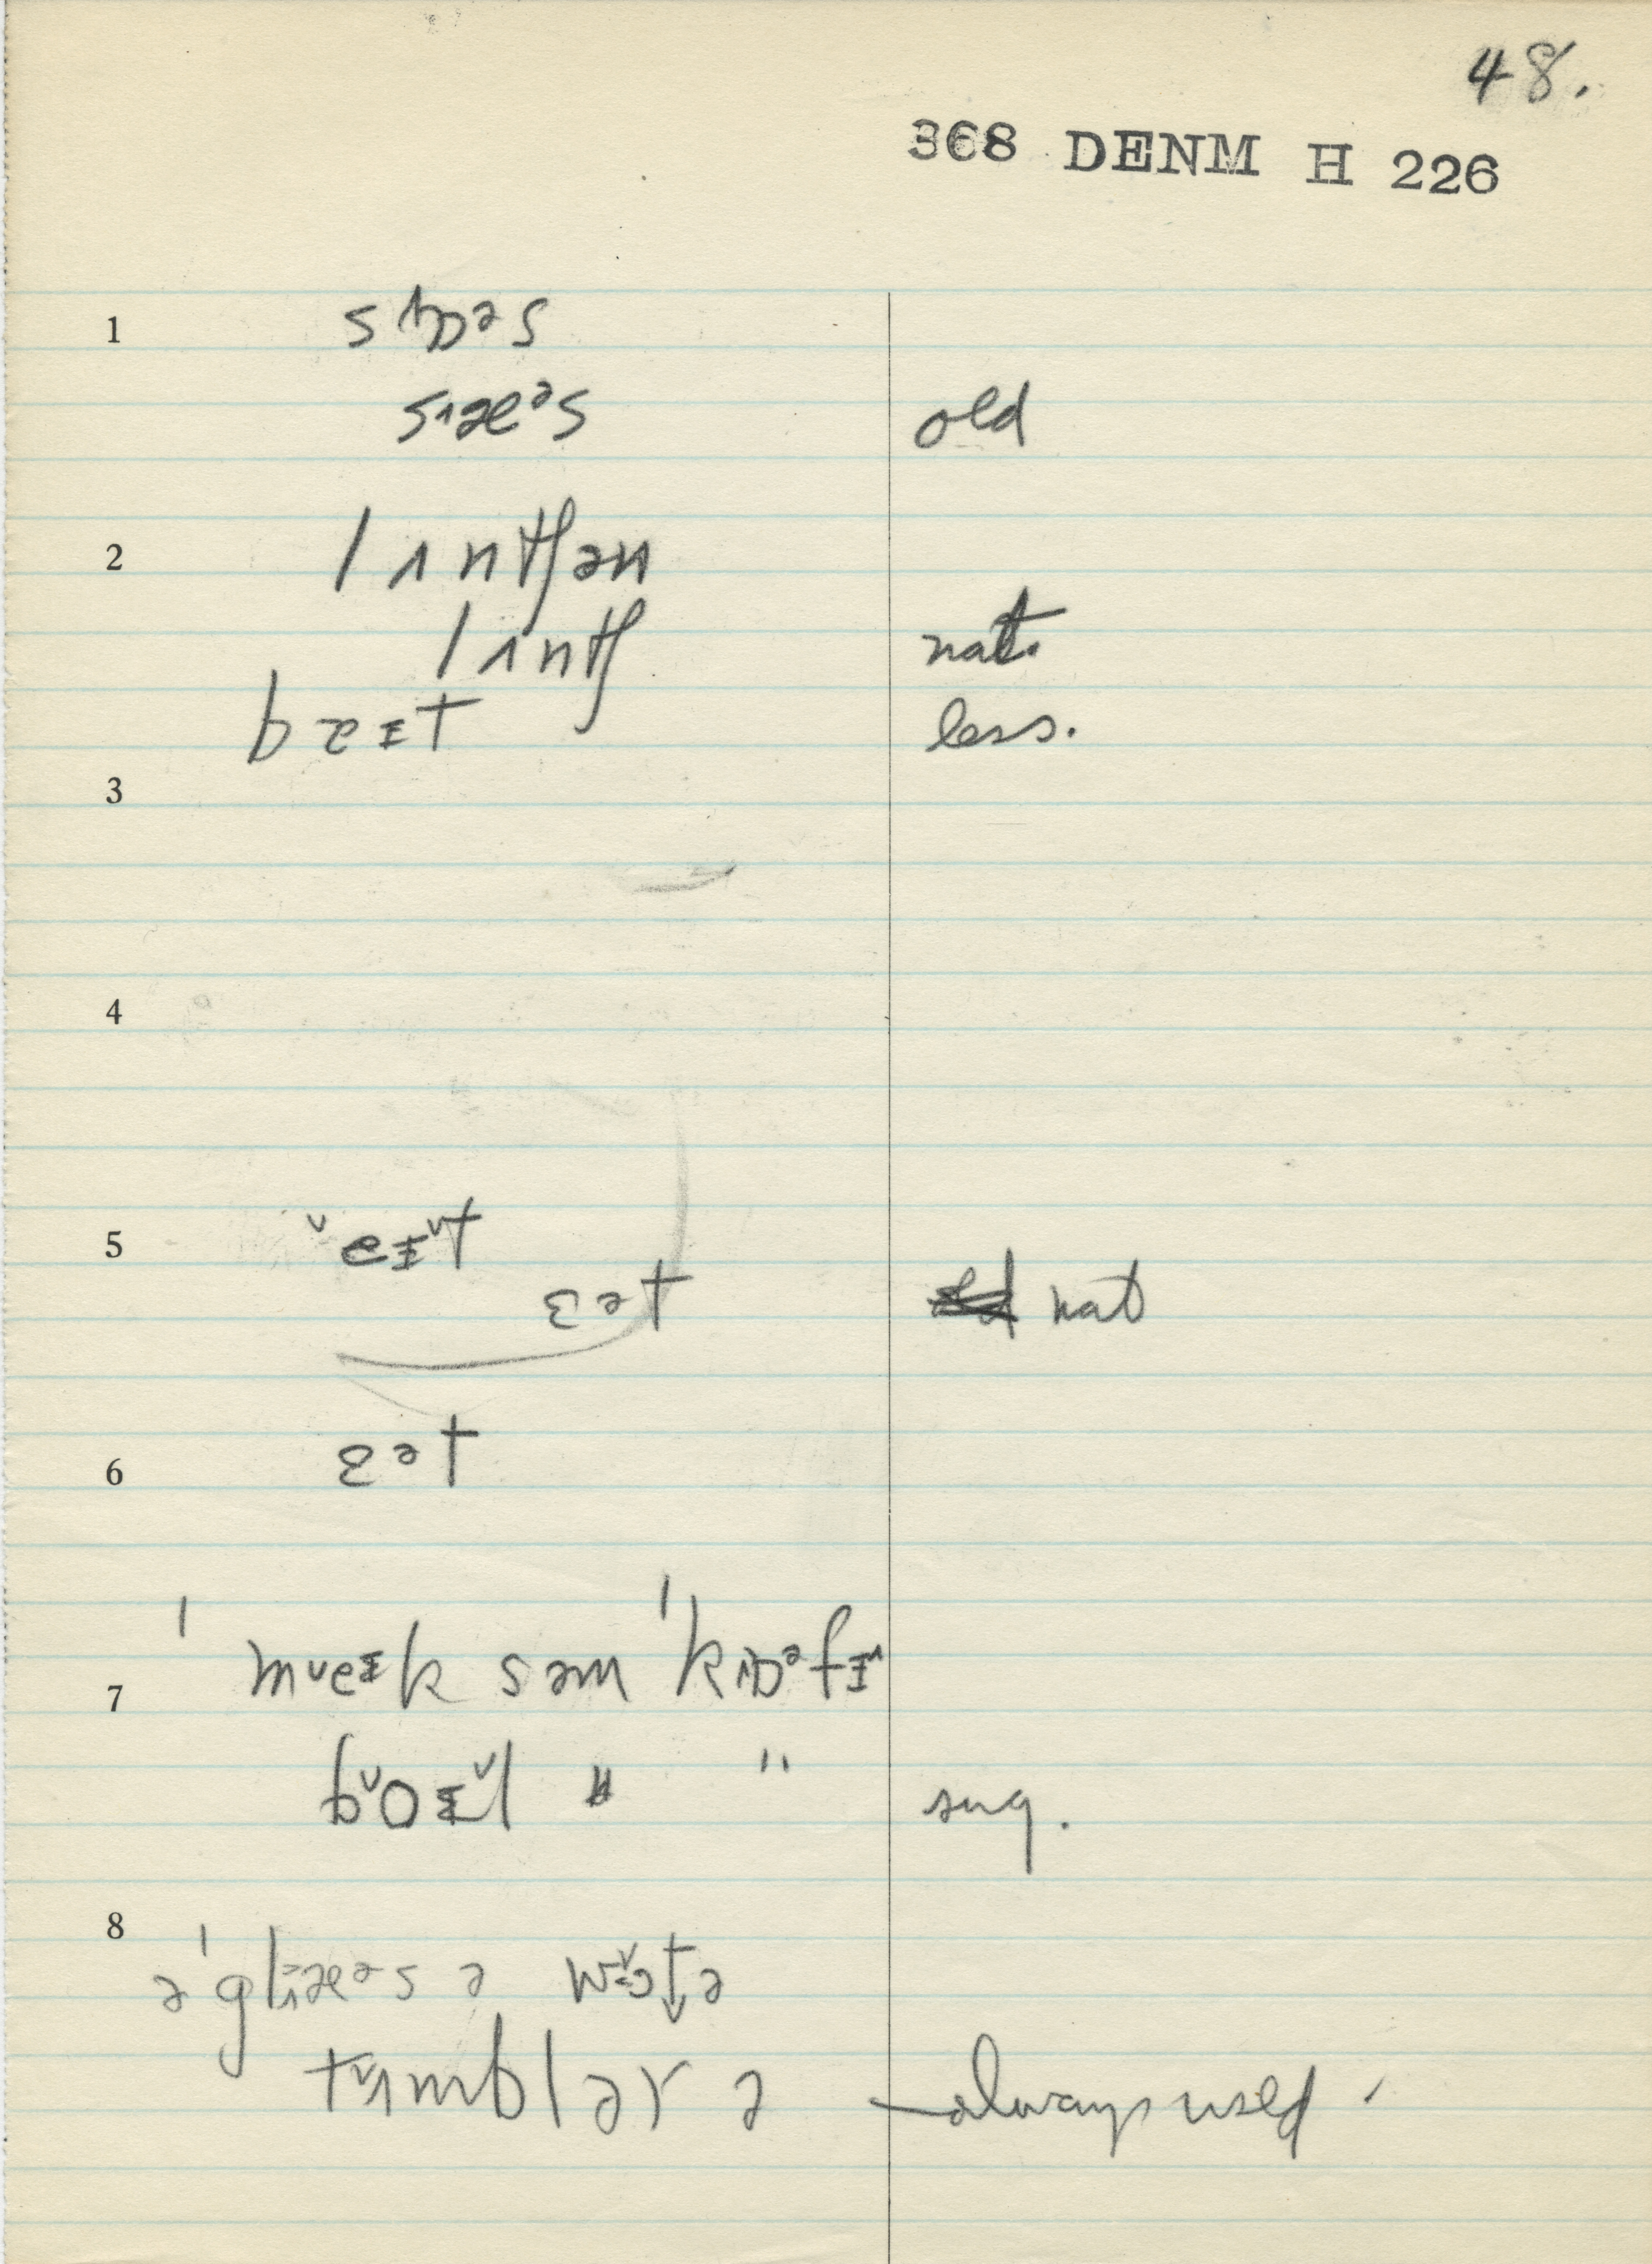 48.
368 DENM H 226
1 sɒᵊs
sæᵊs old
2 lʌntʃən
lʌntʃ nat.
bɪt less.
3
4
5 ˇeɪˇt
ɛᵊt nat
6 ɛᵊt
7 ˈmˇeɪk səm ˈkɒᵊfɪ
bˇoɪˇl " " sug.
8 ə ˈglæᵊs ə wɔtə
tʌmblər ə always used